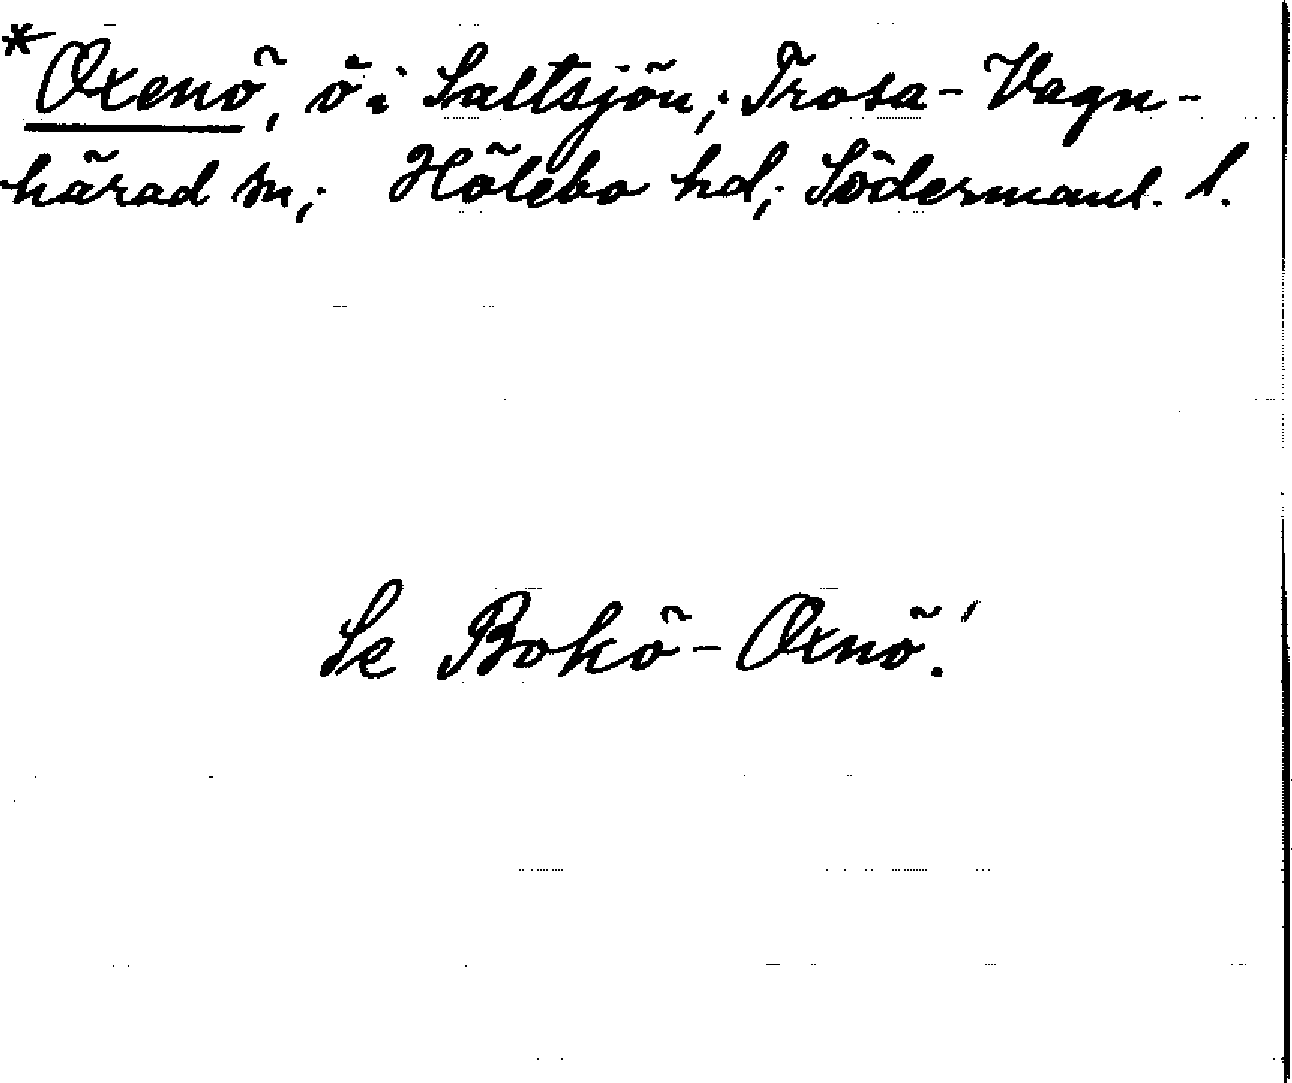 *Oxenö, ö i Saltsjön; Trosa-Vagn-
härad sn; Hölebo hd; Södermanl. l.
Se Bokö-Oxnö!